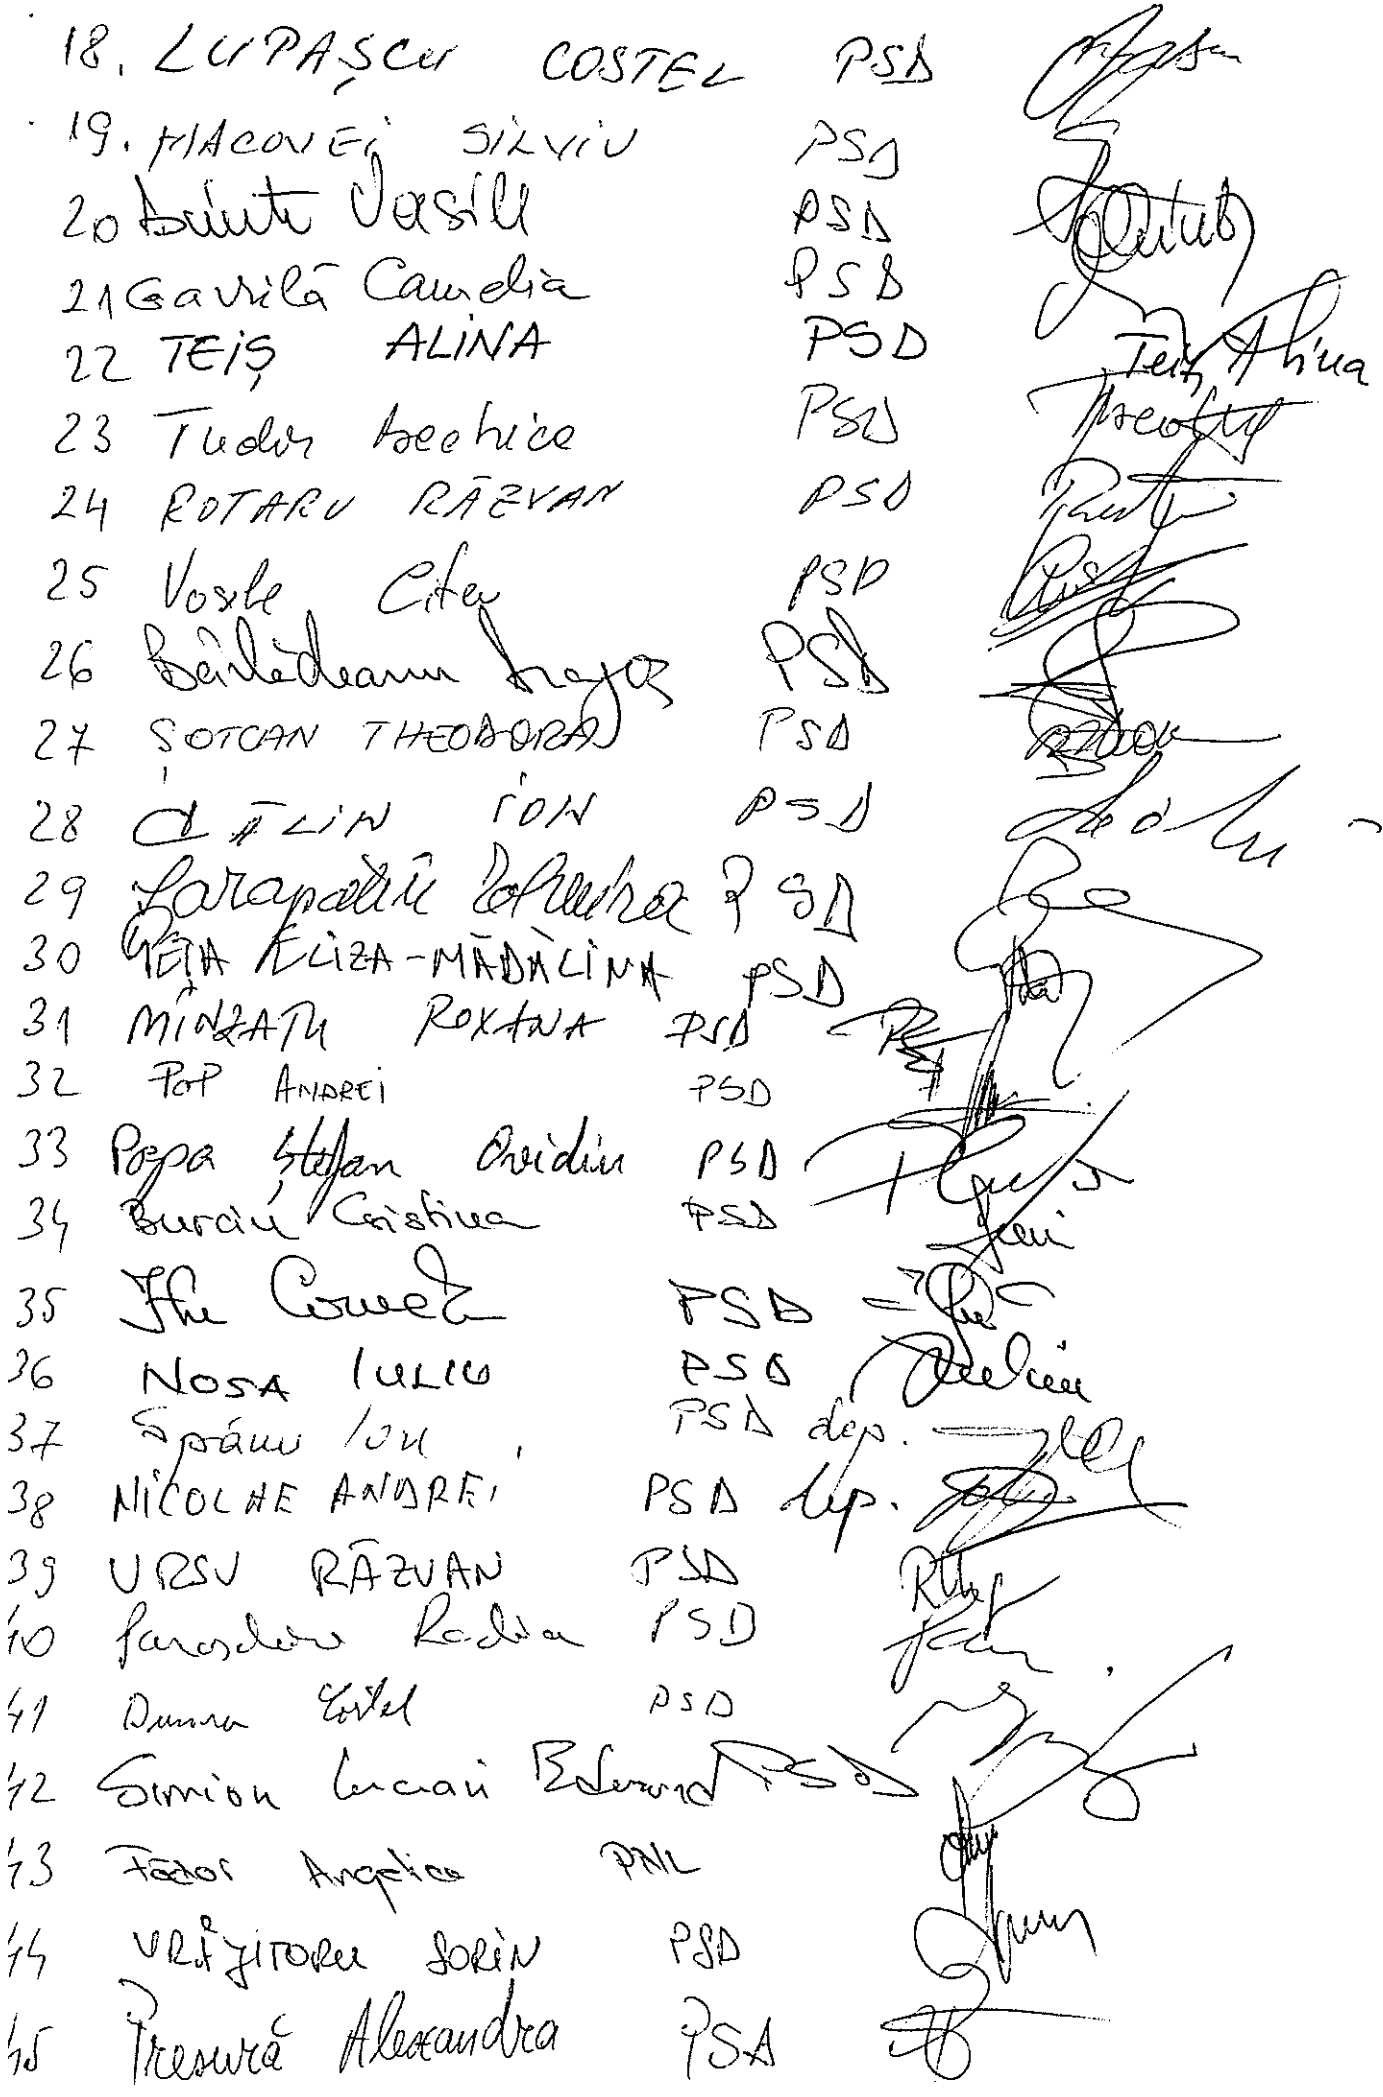 18. LUPAȘCU COSTEL PSD
19. MACOVEI SILVIU PSD
20 Vasile PSD
21 Gavrilă Camelia PSD
22 TEIȘ ALINA PSD Teiș Alina
23 Tudor Beatrice PSD
24 ROTARU RĂZVAN PSD
25 Vasile Cîtea PSD
26 Bârlădeanu Dragoș PSD
27 ȘOTCAN THEODORA PSD
28 CĂLIN ION PSD
29 PSD
30 PEȚA ELIZA-MĂDĂLINA PSD
31 MÎNZATU ROXANA PSD
32 POP ANDREI PSD
33 Popa Ștefan Ovidiu PSD
34 Burciu Cristina PSD
35 PSD
36 NOSA IULIU PSD
37 Spânu Ion PSD dep.
38 NICOLAE ANDREI PSD dep.
39 URSU RĂZVAN PSD
40 PSD
41 Dunca Costel PSD
42 Simion Lucian Eduard PSD
43 Fădor Angelica PNL
44 VRĂJITORU SORIN PSD
45 Presură Alexandra PSD